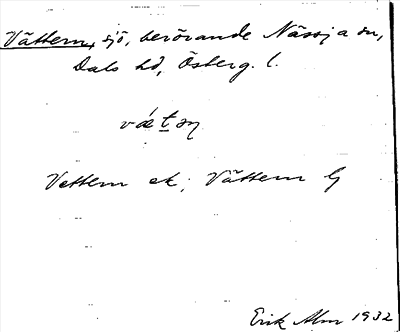 Vättern, sjö, berörande Nässja sn,
Dals hd, Österg. l.
Vettern ek; Vättern G
Erik Alm 1932